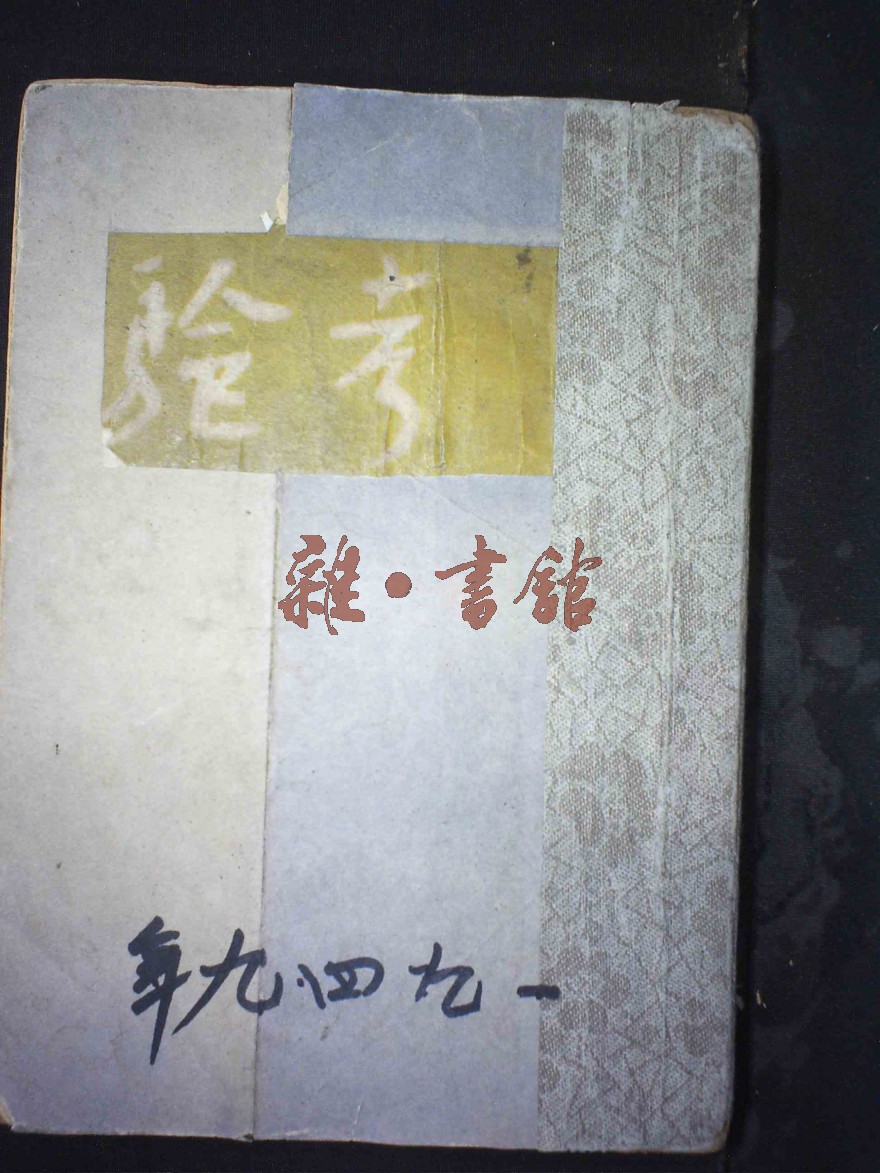 考驗
雜·書館
一九四九年